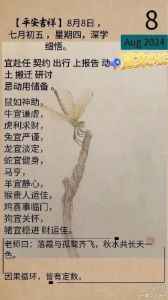 【平安吉祥】8月8日，
七月初五，星期四，深学
细悟。
8
Aug 2024
宜赴任 契约 出行 上报告 动
土 搬迁 研讨
忌动用储备。
鼠如神助，
牛宜谦虚，
虎利求财，
兔宜严谨，
龙宜淡定，
蛇宜健身，
马亨，
羊宜静心，
猴贵人运佳，
鸡喜事临门，
狗宜关怀，
猪宜稳进 财运佳。
老师曰：落霞与孤鹜齐飞，秋水共长天一
色。
因果循环，皆有定数。